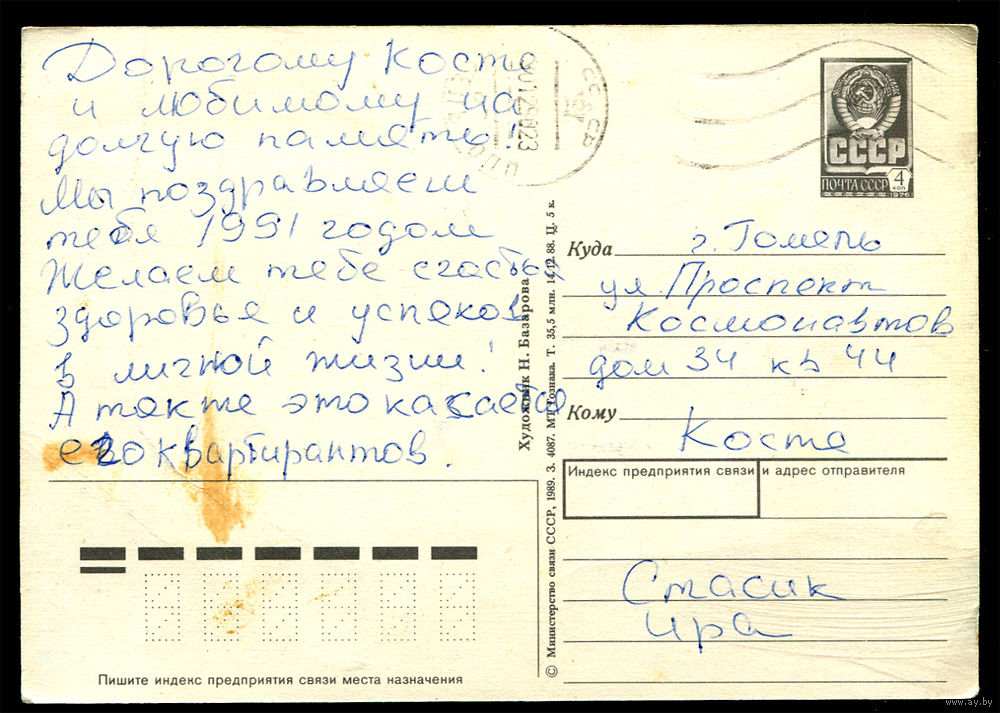 Дорогому Косте
и любимому на
долгую память!
Мы поздравляем
тебя 1991 годом
Желаем тебе счастья
здоровья и успехов
в личной жизни!
А также это касается
его квартирантов.
СССР
ПОЧТА СССР 4 коп
1976
Куда г. Гомель
ул. Проспект
Космонавтов
дом 34 кв 44
Кому
Косте
Индекс предприятия связи и адрес отправителя
Стасик
Ира
Пишите индекс предприятия связи места назначения
Художник Н. Базарова
© Министерство связи СССР, 1989. З. 4087. МТ Гознака. Т. 35,5 млн. 14.12.88. Ц. 5 к.
www.ay.by